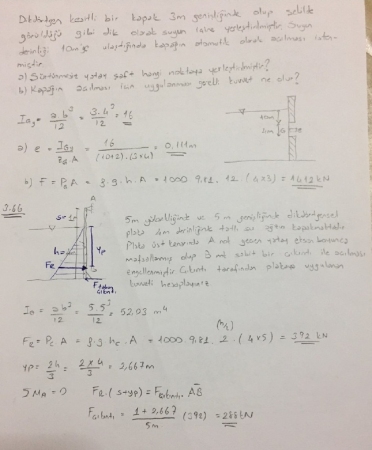 Dikdörtgen kesitli bir kapak 3m genişliğinde olup şekilde
görüldüğü gibi dik olarak suyun içine yerleştirilmiştir. Suyun
derinliği 10m'ye ulaştığında kapağın otomatik olarak açılması isten-
miştir.
a) Sürtünmesiz yatay şaft hangi noktaya yerleştirilmiştir?
b) Kapağın açılması için uygulanması gerekli kuvvet ne olur?
= ab³/12 = 3.4³/12 = 16
10m
2m
a) e = = 16 / (10+2).(3x4) = 0,111m
b) F = P A = g.h.A = 1000.9,81.12.(4x3) = 1412 kN
A
5m yüksekliğinde ve 5 m genişliğinde dikdörtgensel
plaka 4m derinliğinde tatlı su
Plaka üst kenarında A nok geçen yatay eksen boyunca
mafsallanmış olup B sabit bir çıkıntı ile açılması
engellenmiştir. Çıkıntı tarafından plakaya uygulanan
kuvveti hesaplayınız.
hc
yp
FR
= ab³/12 = 5.5³/12 = 52,03 m⁴
(h/2)
FR = Pc A = g hc A = 1000.9,81.2.(4x5) = 392 kN
yp = 2h/3 = 2x4/3 = 2,667m
ΣMA = 0 FR.(s+yp) = Fçıkıntı. AB
Fçıkıntı = 1+2,667 / 5m (392) = 288 kN